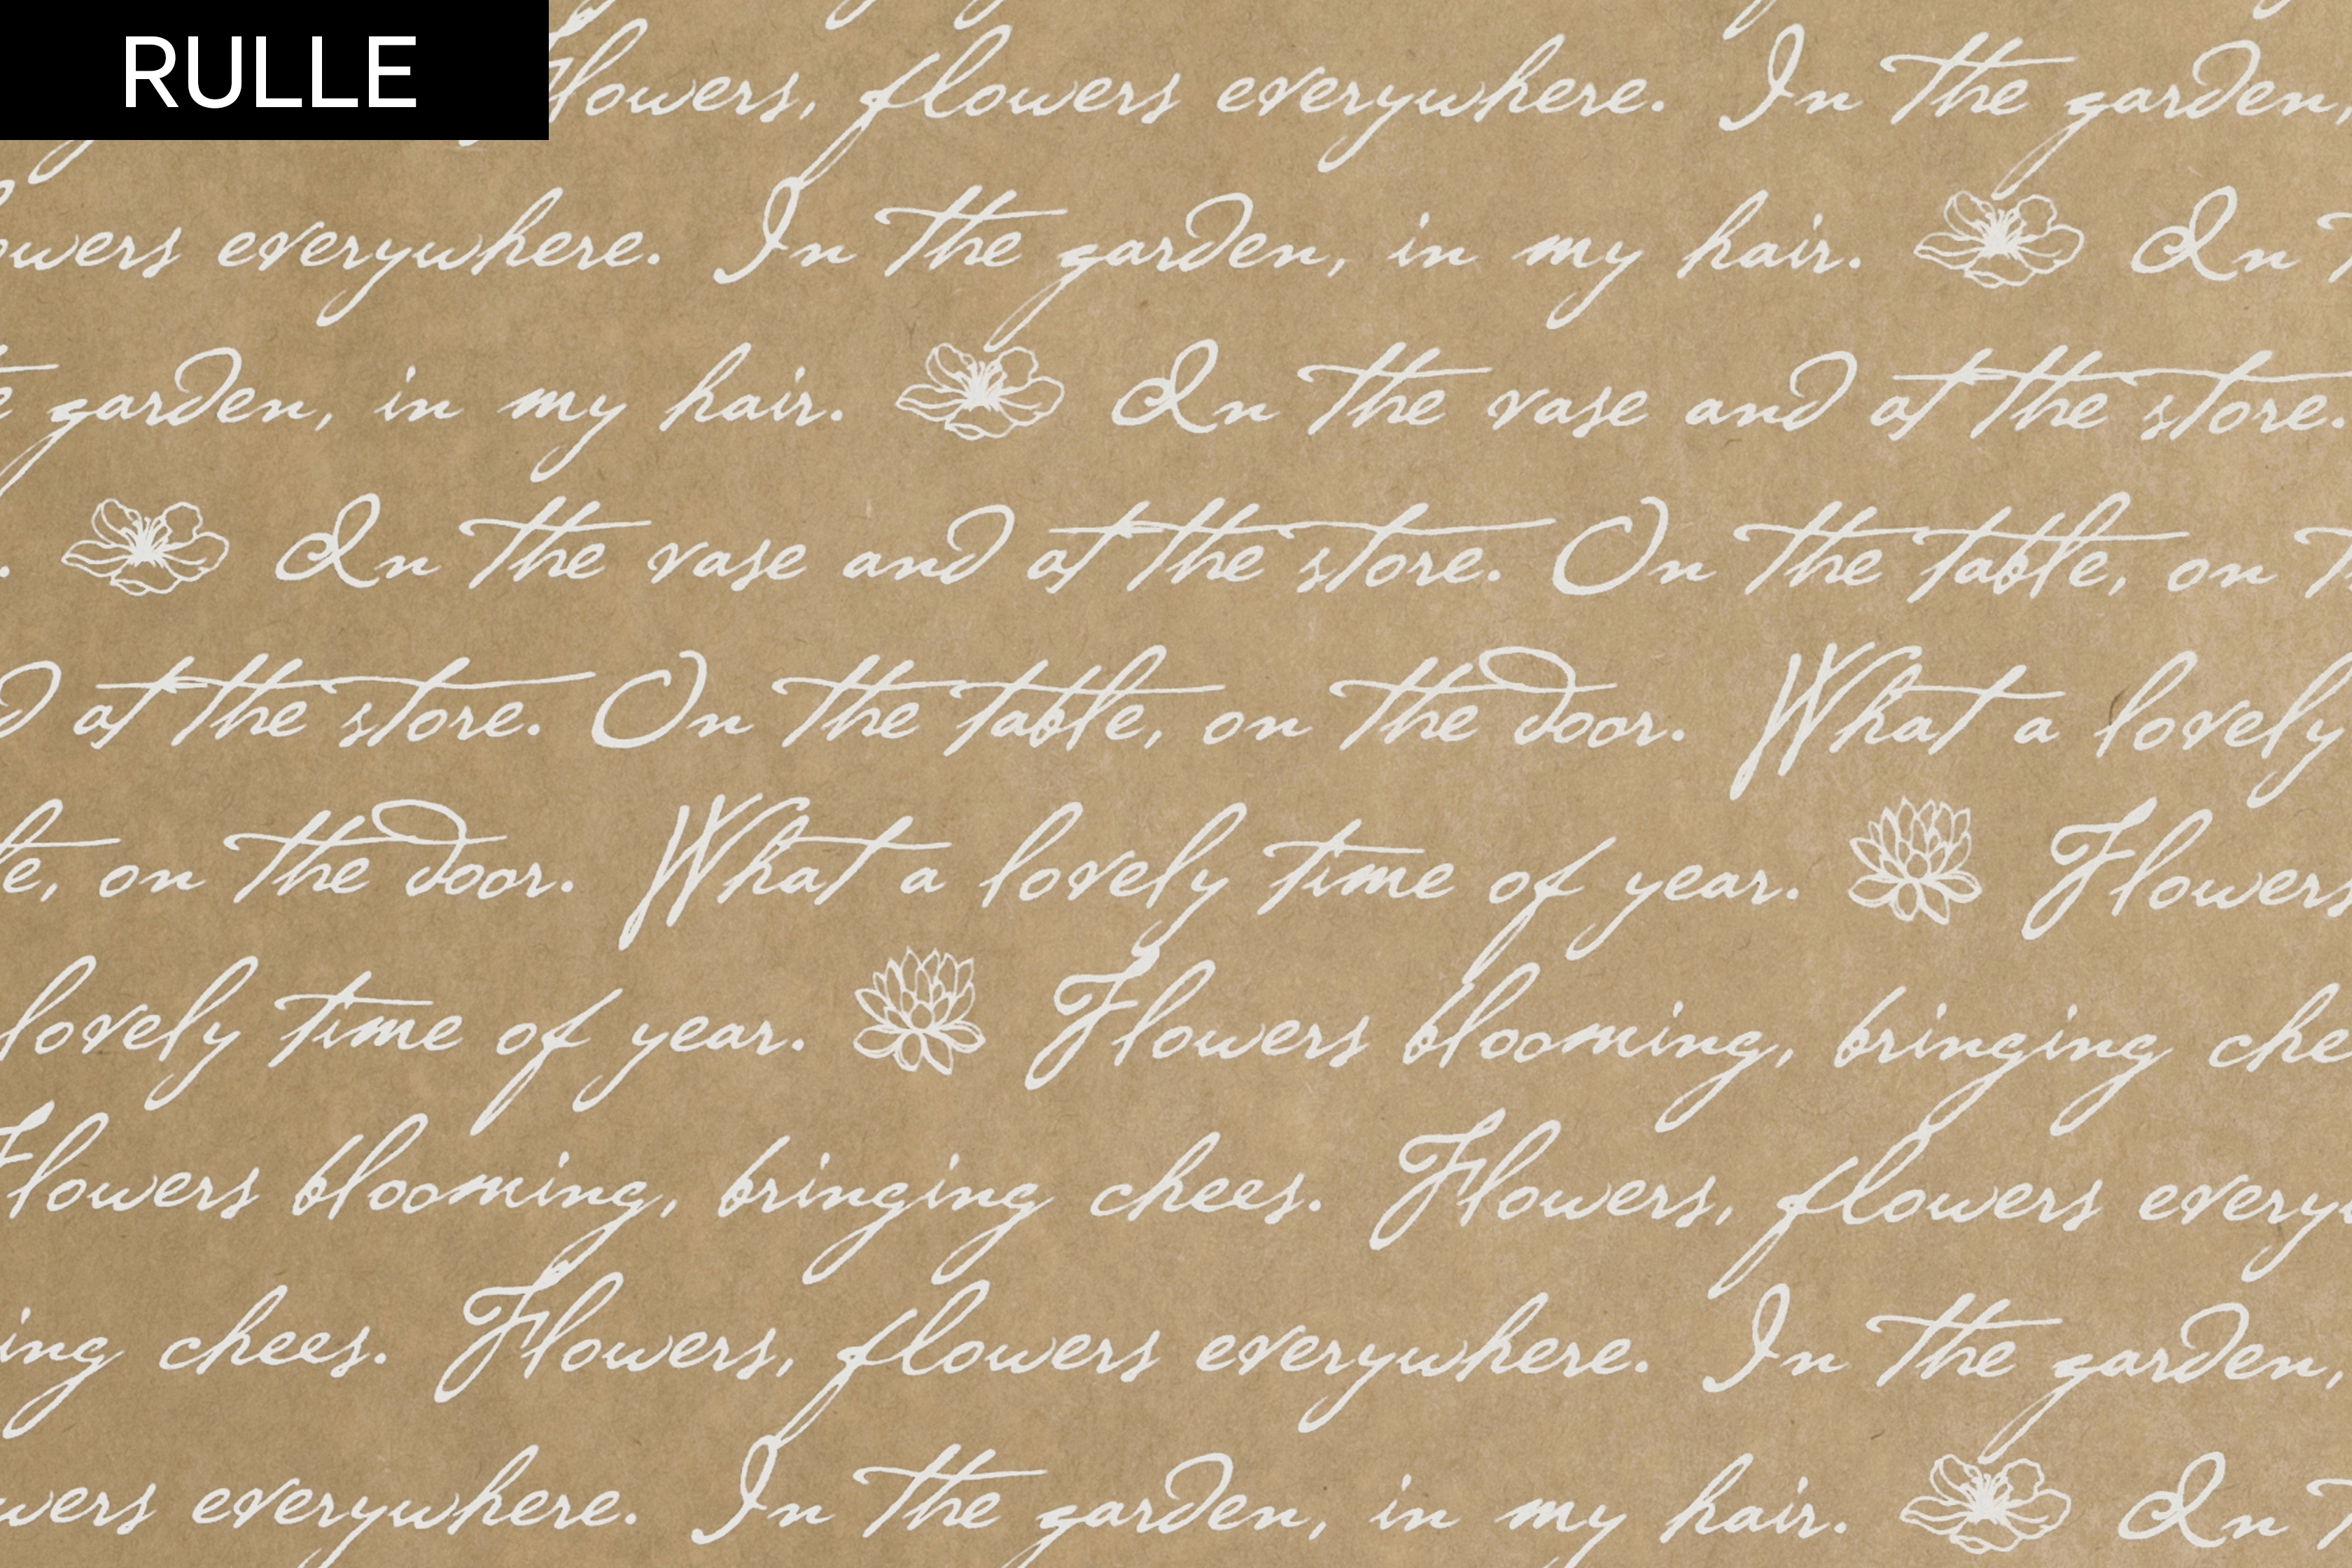 RULLE
Flowers, flowers everywhere. In the garden,
owers everywhere. In the garden, in my hair. In
garden, in my hair. In the vase and at the store.
In the vase and at the store. On the table, on
at the store. On the table, on the door. What a lovely
le, on the door. What a lovely time of year. Flowers
lovely time of year. Flowers blooming, bringing chee
Flowers blooming, bringing chees. Flowers, flowers every
ing chees. Flowers, flowers everywhere. In the garden,
wers everywhere. In the garden, in my hair. In